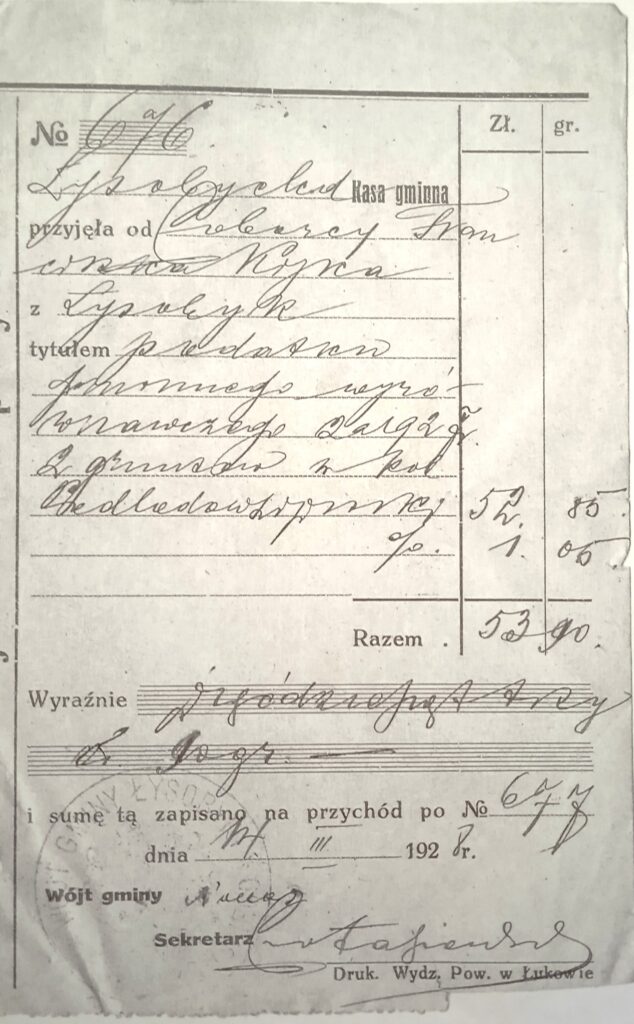 Zł. gr.
№ 676
Łysobycka Kasa gminna
przyjęła od Fran
ciszka Kojka
z Łysobyk
tytułem podatku
gminnego wyró-
wnawczego za 192 r.
z gruntów w kol
52. 85.
%. 1. 05.
Razem . 53 90.
Wyraźnie Pięćdziesiąt trzy
zł. 90 gr. —
i sumę tą zapisano na przychód po № 677
dnia III 1928 r.
Wójt gminy
Sekretarz
Druk. Wydz. Pow. w Łukowie